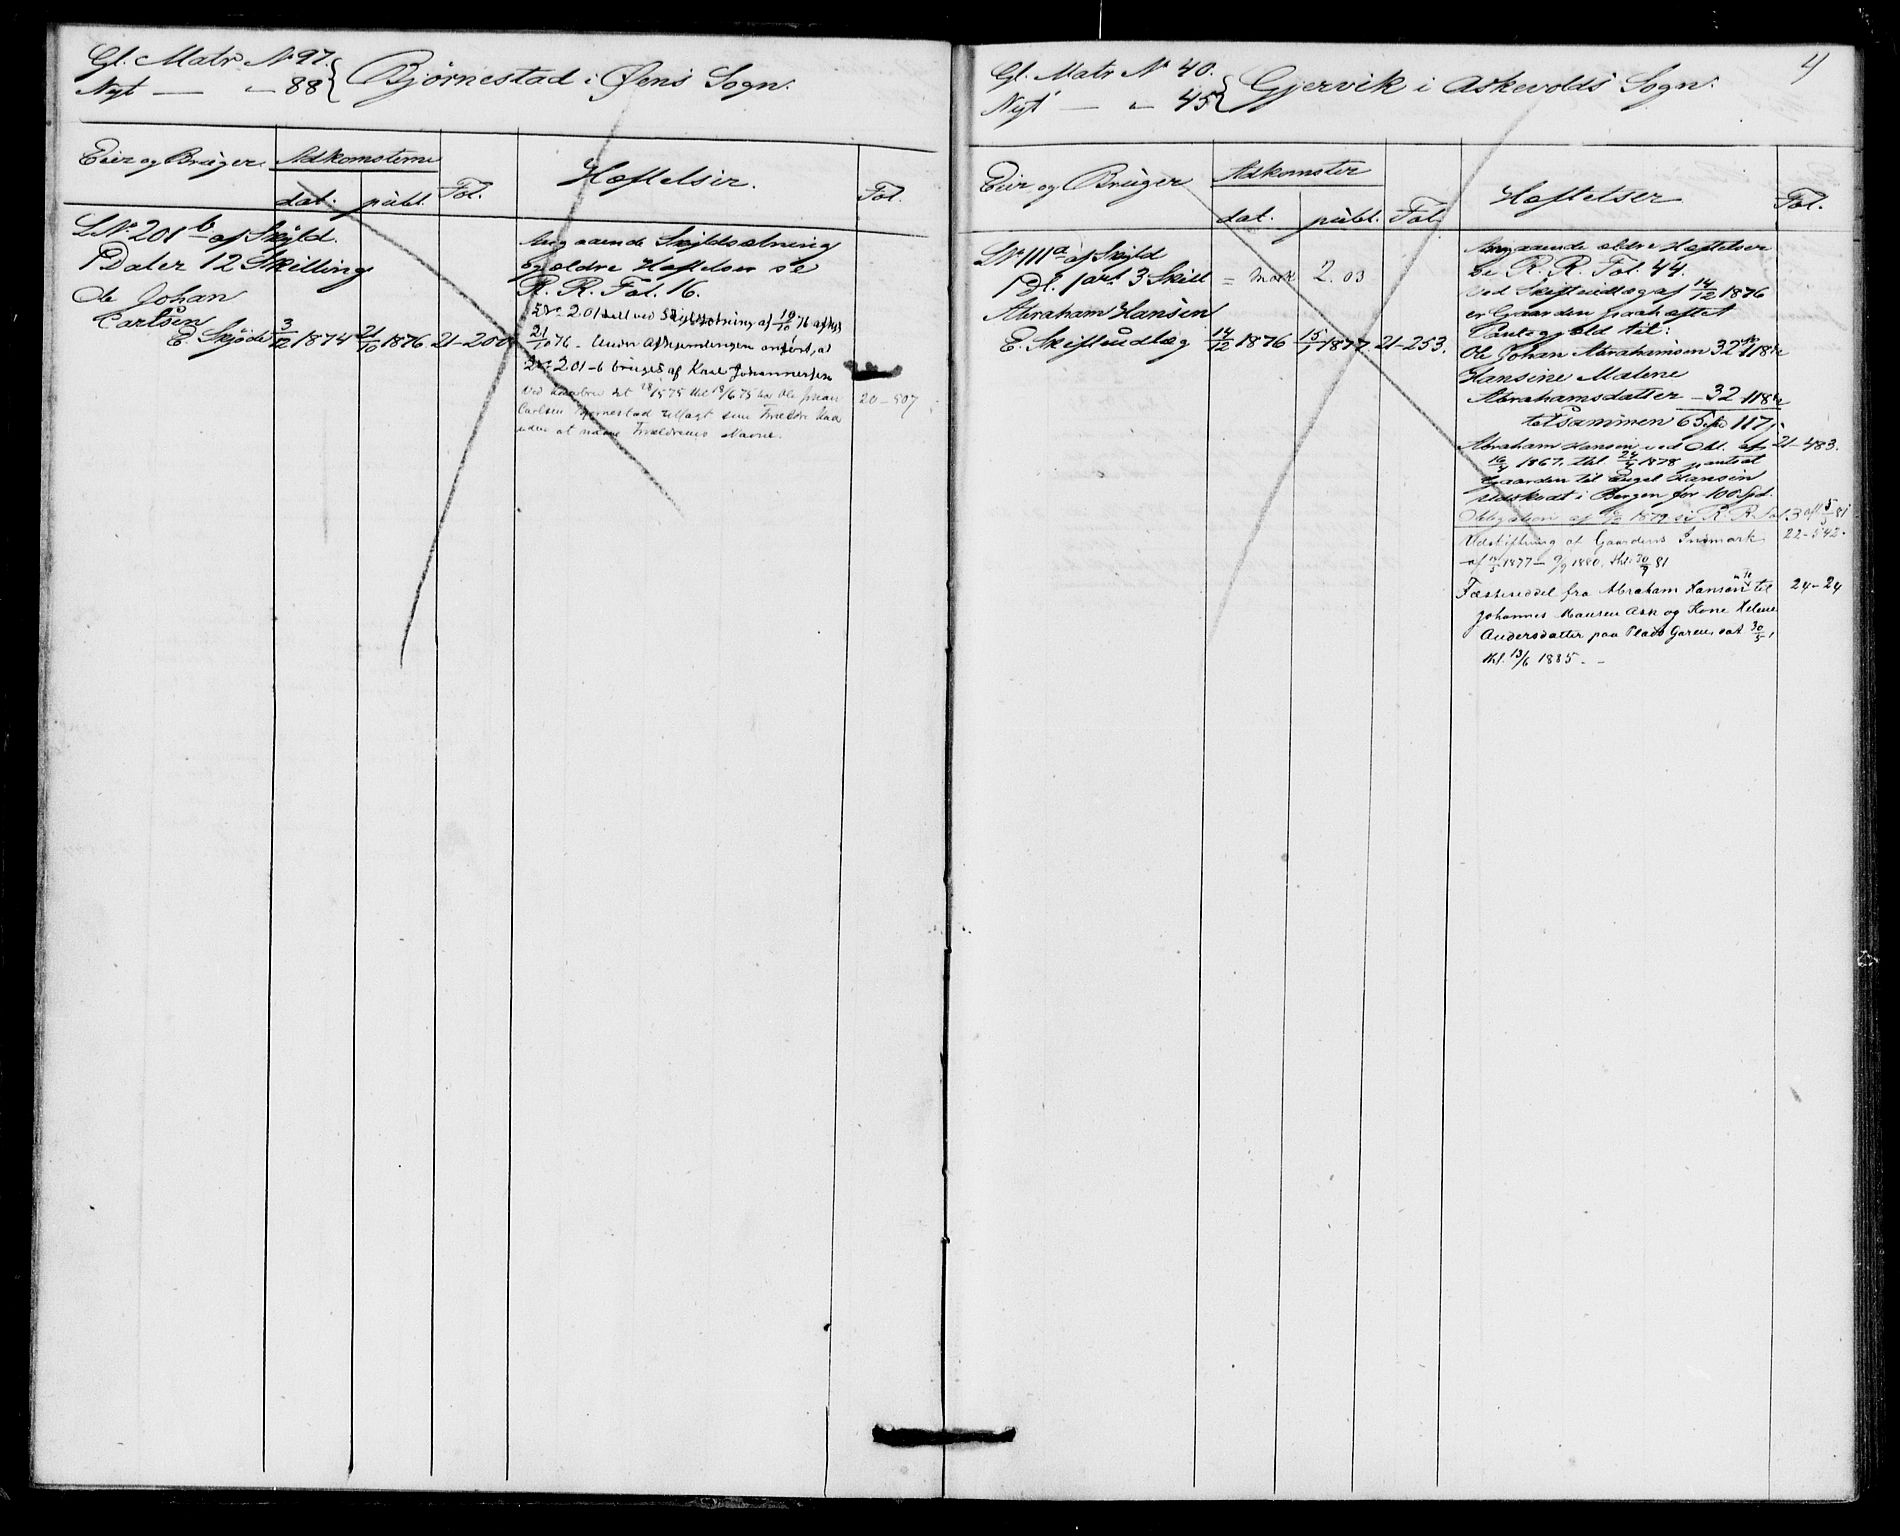 Gl. Matr. No 97.
Nyt — " — 88 } Bjørnestad i Øens Sogn.
Eier og Bruger. Adkomsterne Hæftelser. Fol.
dat. publ. Fol.
LNo 201 b af Skyld.
1 Daler 12 Skilling
Ole Johan
Carlsen
E. Skjøde 3/12 1874 21/10 1876 21-200
Angaaende Skyldsætning
og ældre Hæftelser se
R. R. Fol. 16.
LNo 201 delt ved Skyldsætning af 10/10 76
21/10 76 - Under Afhjemlingen anført, at
LNo 201-b bruges af Johannessen
Ved det 18/ 1875 thl 18/6 75 har Ole Johan 20-507
Carlsen Bjørnestad sine Forældre
uden at nævne Forældrenes Navne.
4
Gl. Matr No 40.
Nyt — " — 45 } Gjervik i Askevolds Sogn.
Eier og Bruger Adkomster Hæftelser Fol.
dat. publ. Fol.
LNo 111 a af Skyld
1 Dl. 1 ort 3 Skill = Mark 2.03
Abraham Hansen
E. Skifteudlæg 14/12 1876 15/1 1877. 21-253.
Angaaende ældre Hæftelser
se R. R. Fol. 44.
Ved Skifteudlæg af 14/12 1876
er Gaarden paahæftet
Pantegjæld til:
Ole Johan Abrahamsen 32 118
Hansine Malene
Abrahamsdatter — 32 118
tilsammen 65 117
Abraham Hansen ved Obl. af 21-483.
16/4 1867. thl. 24/4 1878 pantsat
Gaarden til Engel Hansen
Udskudt i Bergen for 100 Spd.
Obligation af 1879 se R. R. Fol 3 af 5/3 81
Udskiftning af Gaardens Indmark 22-542.
af 1877 - 9/9 1880, thl. 30/9 81
Fæsteseddel fra Abraham Hansen til 24-24
Johannes Hansen Ask og Kone Helene
Andersdatter paa Plads dat 30/5,
thl. 13/6 1885. —